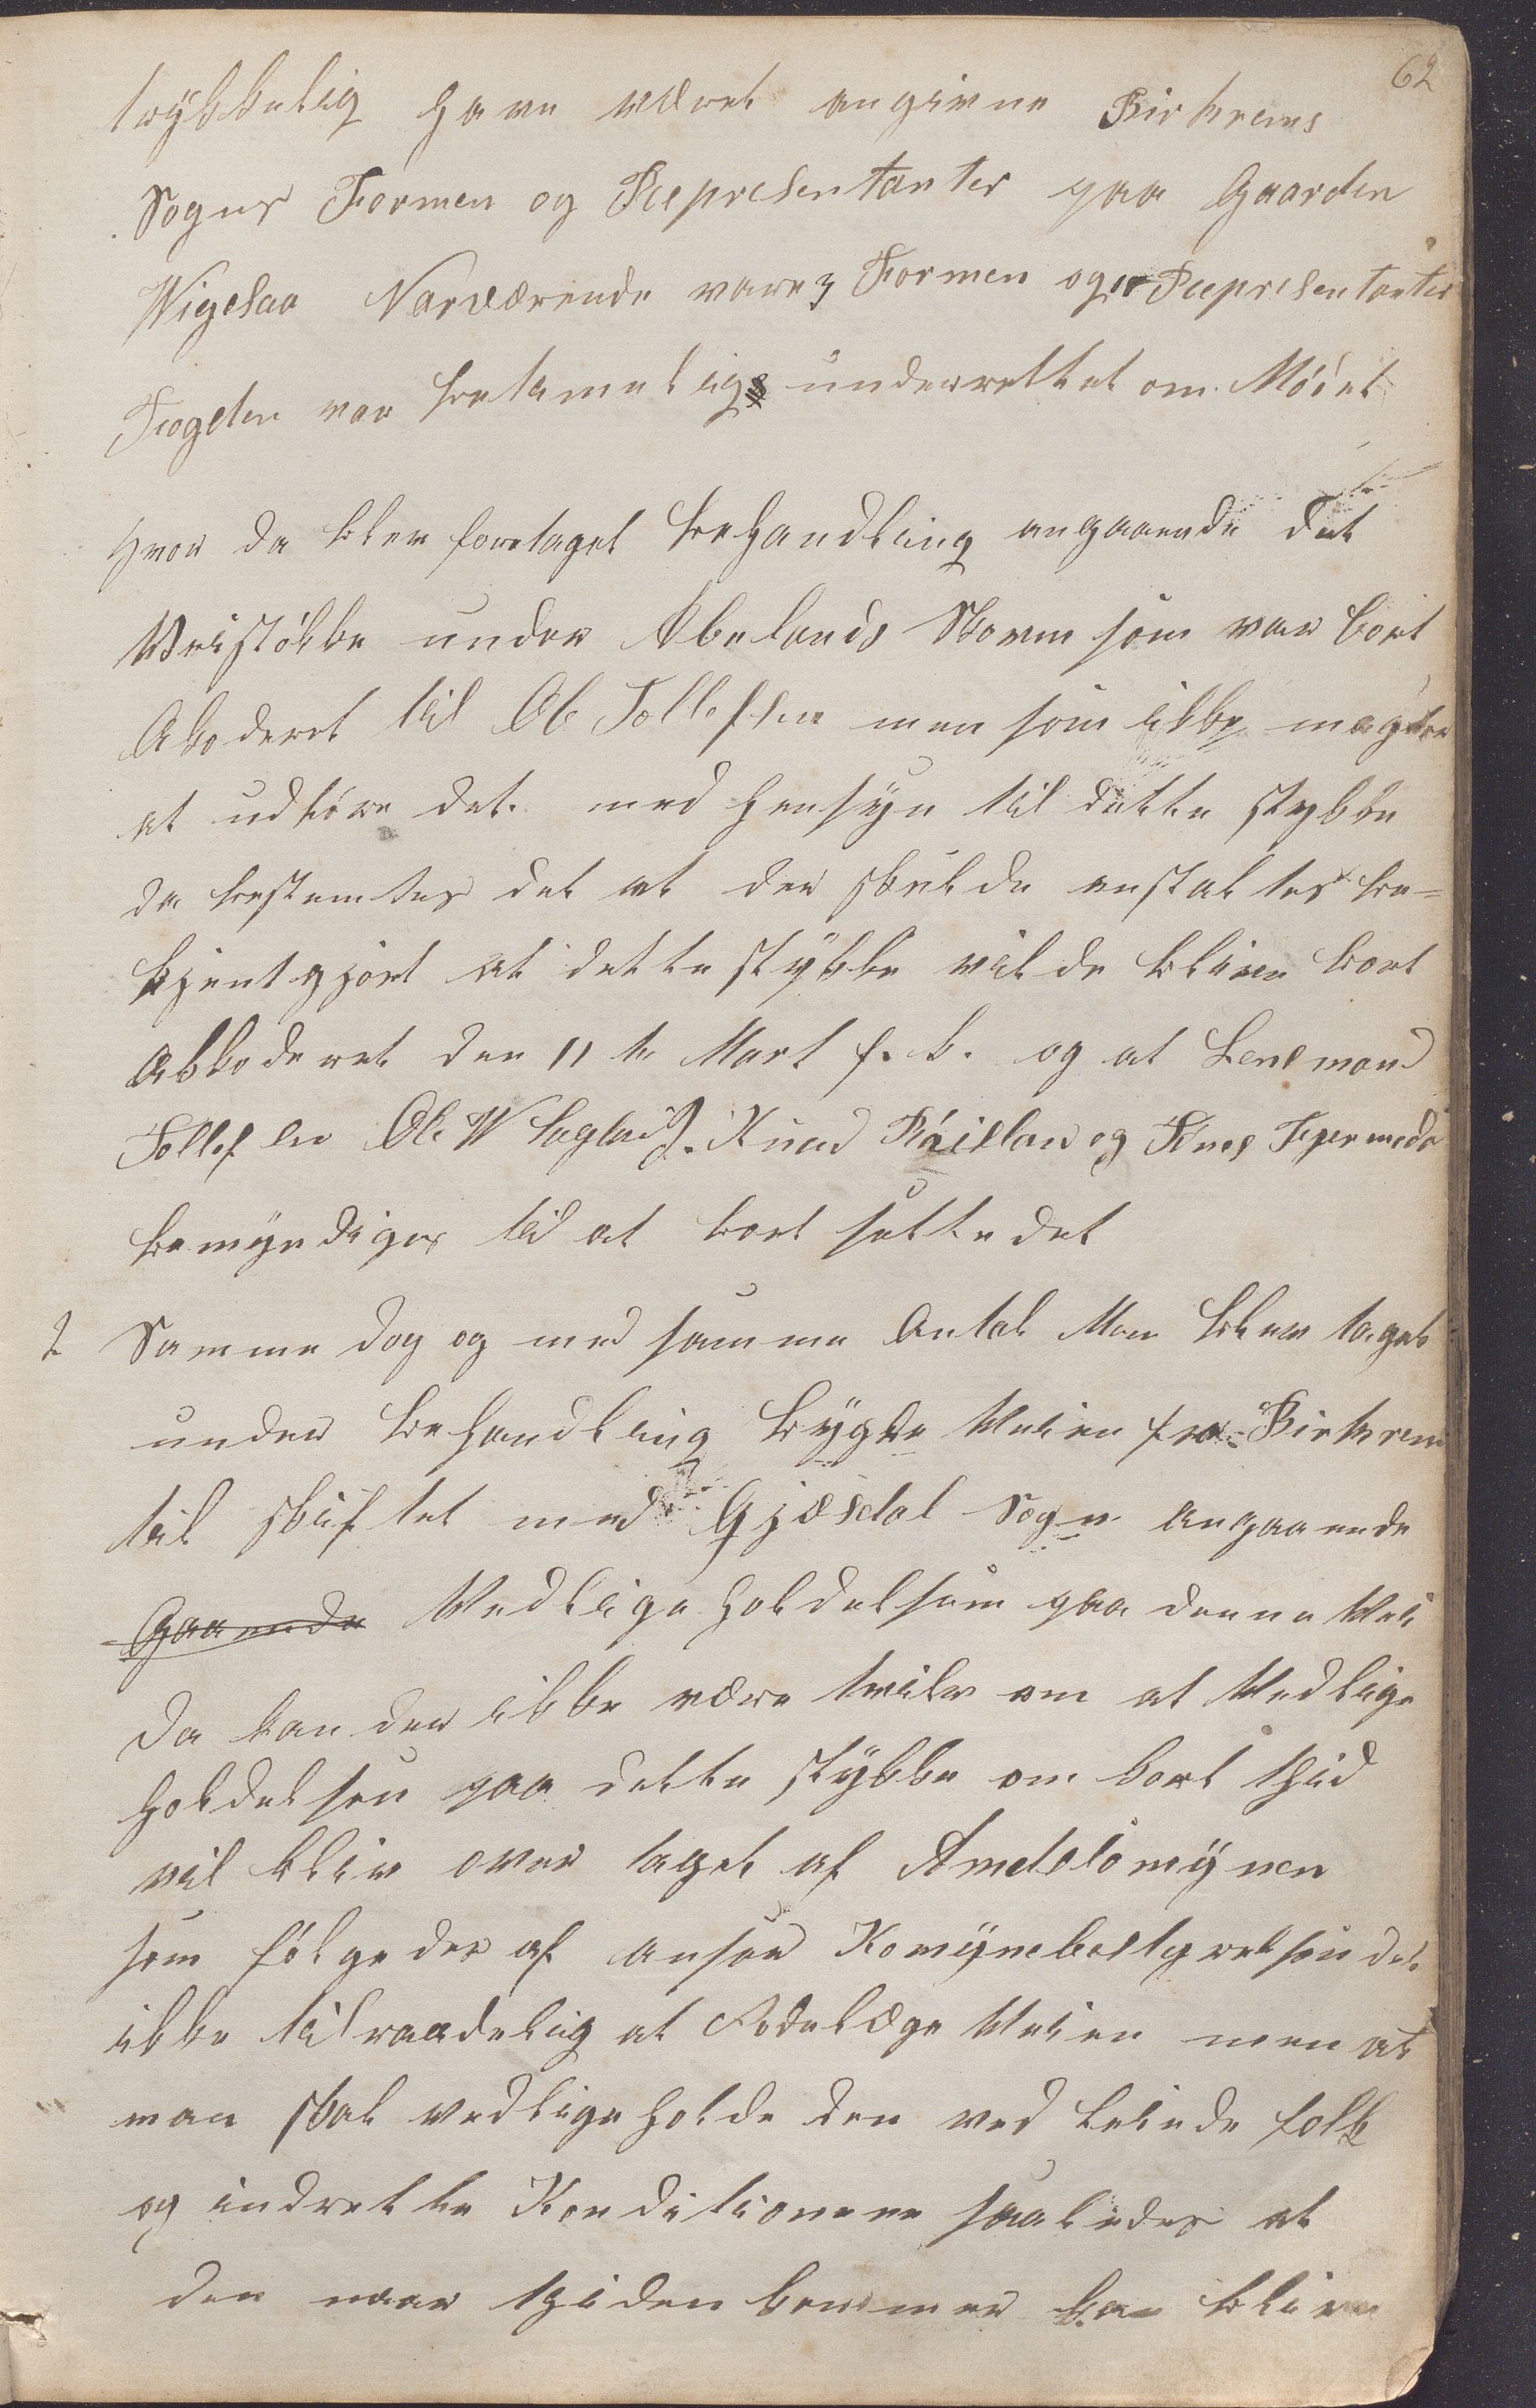 62
trÿkkelig have været angivne Birkrems
Sogns Formen og Representanter paa Gaarden
Wigesaa Nærværende vare 3 Formen og Representanter
Fogden var betimelig underrettet om Mödet
Hvor da blev foretaget behandling angaaende det
Veistökke under Abelands Skoven som var bort
Akoderet til Ole Tollefsen men som ikke magter
at udföre det. med Hensÿn til dette stykke
da bestemtes det at der skulde anstaltes be=
kjentgjört at dette stÿkke vilde blive bort
Akkoderet den 11te Mart f. k. og at Lensmand
Tollefsen Ole W Knud og
bemÿndiges til at bort sette det
2 Samme dag og med samme Antal Men blev taget
under behandling bÿgde Veien fra Birkrem
til skiftet med Gjæsdal Sogn angaaende
Gaaende Vedligeholdelsen paa denne Vei
da kan der ikke være tvile om at Vedlige
holdelsen paa dette stÿkke om kort thid
vil bliv over taget af Amtskomÿnen
som fölge der af anser Komÿnebestyrelsen det
ikke tilraadelig at Rodelæge Veien men at
man skal vedligeholde den ved leiede folk
og indrette Konditionerne saaledes at
den naar thiden kommer kan blive